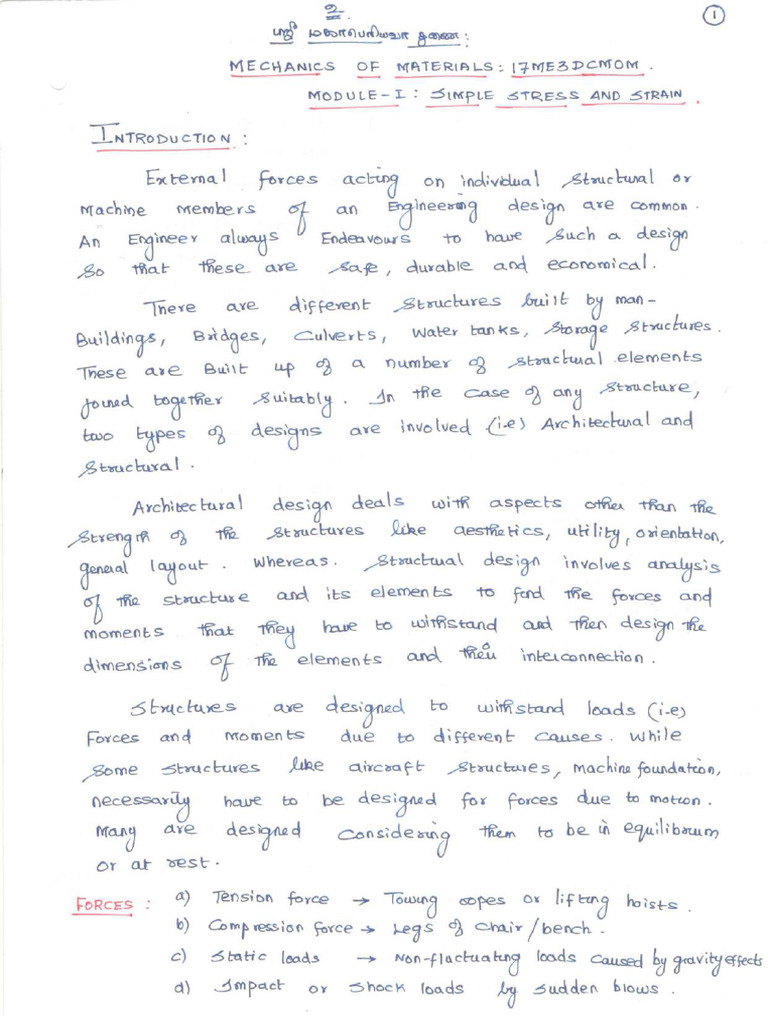 உ
①
ஸ்ரீ மகாபெரியவா துணை:
MECHANICS OF MATERIALS: 17ME3DCMOM.
MODULE-I: SIMPLE STRESS AND STRAIN.
INTRODUCTION:
External forces acting on individual structural or
Machine members of an Engineering design are common.
An Engineer always Endeavours to have such a design
so that these are safe, durable and economical.
There are different structures built by man-
Buildings, Bridges, Culverts, Water tanks, Storage Structures.
These are Built up of a number of structural elements
joined together suitably. In the case of any structure,
two types of designs are involved (i.e) Architectural and
Structural.
Architectural design deals with aspects other than the
strength of the structures like aesthetics, utility, orientation,
general layout. Whereas. Structural design involves analysis
of the structure and its elements to find the forces and
moments that they have to withstand and then design the
dimensions of the elements and their interconnection.
Structures are designed to withstand loads (i.e)
Forces and Moments due to different causes. While
some structures like aircraft structures, machine foundation,
necessarily have to be designed for forces due to motion.
Many are designed considering them to be in equilibrium
or at rest.
FORCES: a) Tension force → Towing ropes or lifting hoists.
b) Compression force → Legs of chair/bench.
c) Static loads → Non-fluctuating loads caused by gravity effects
d) Impact or shock loads by sudden blows.